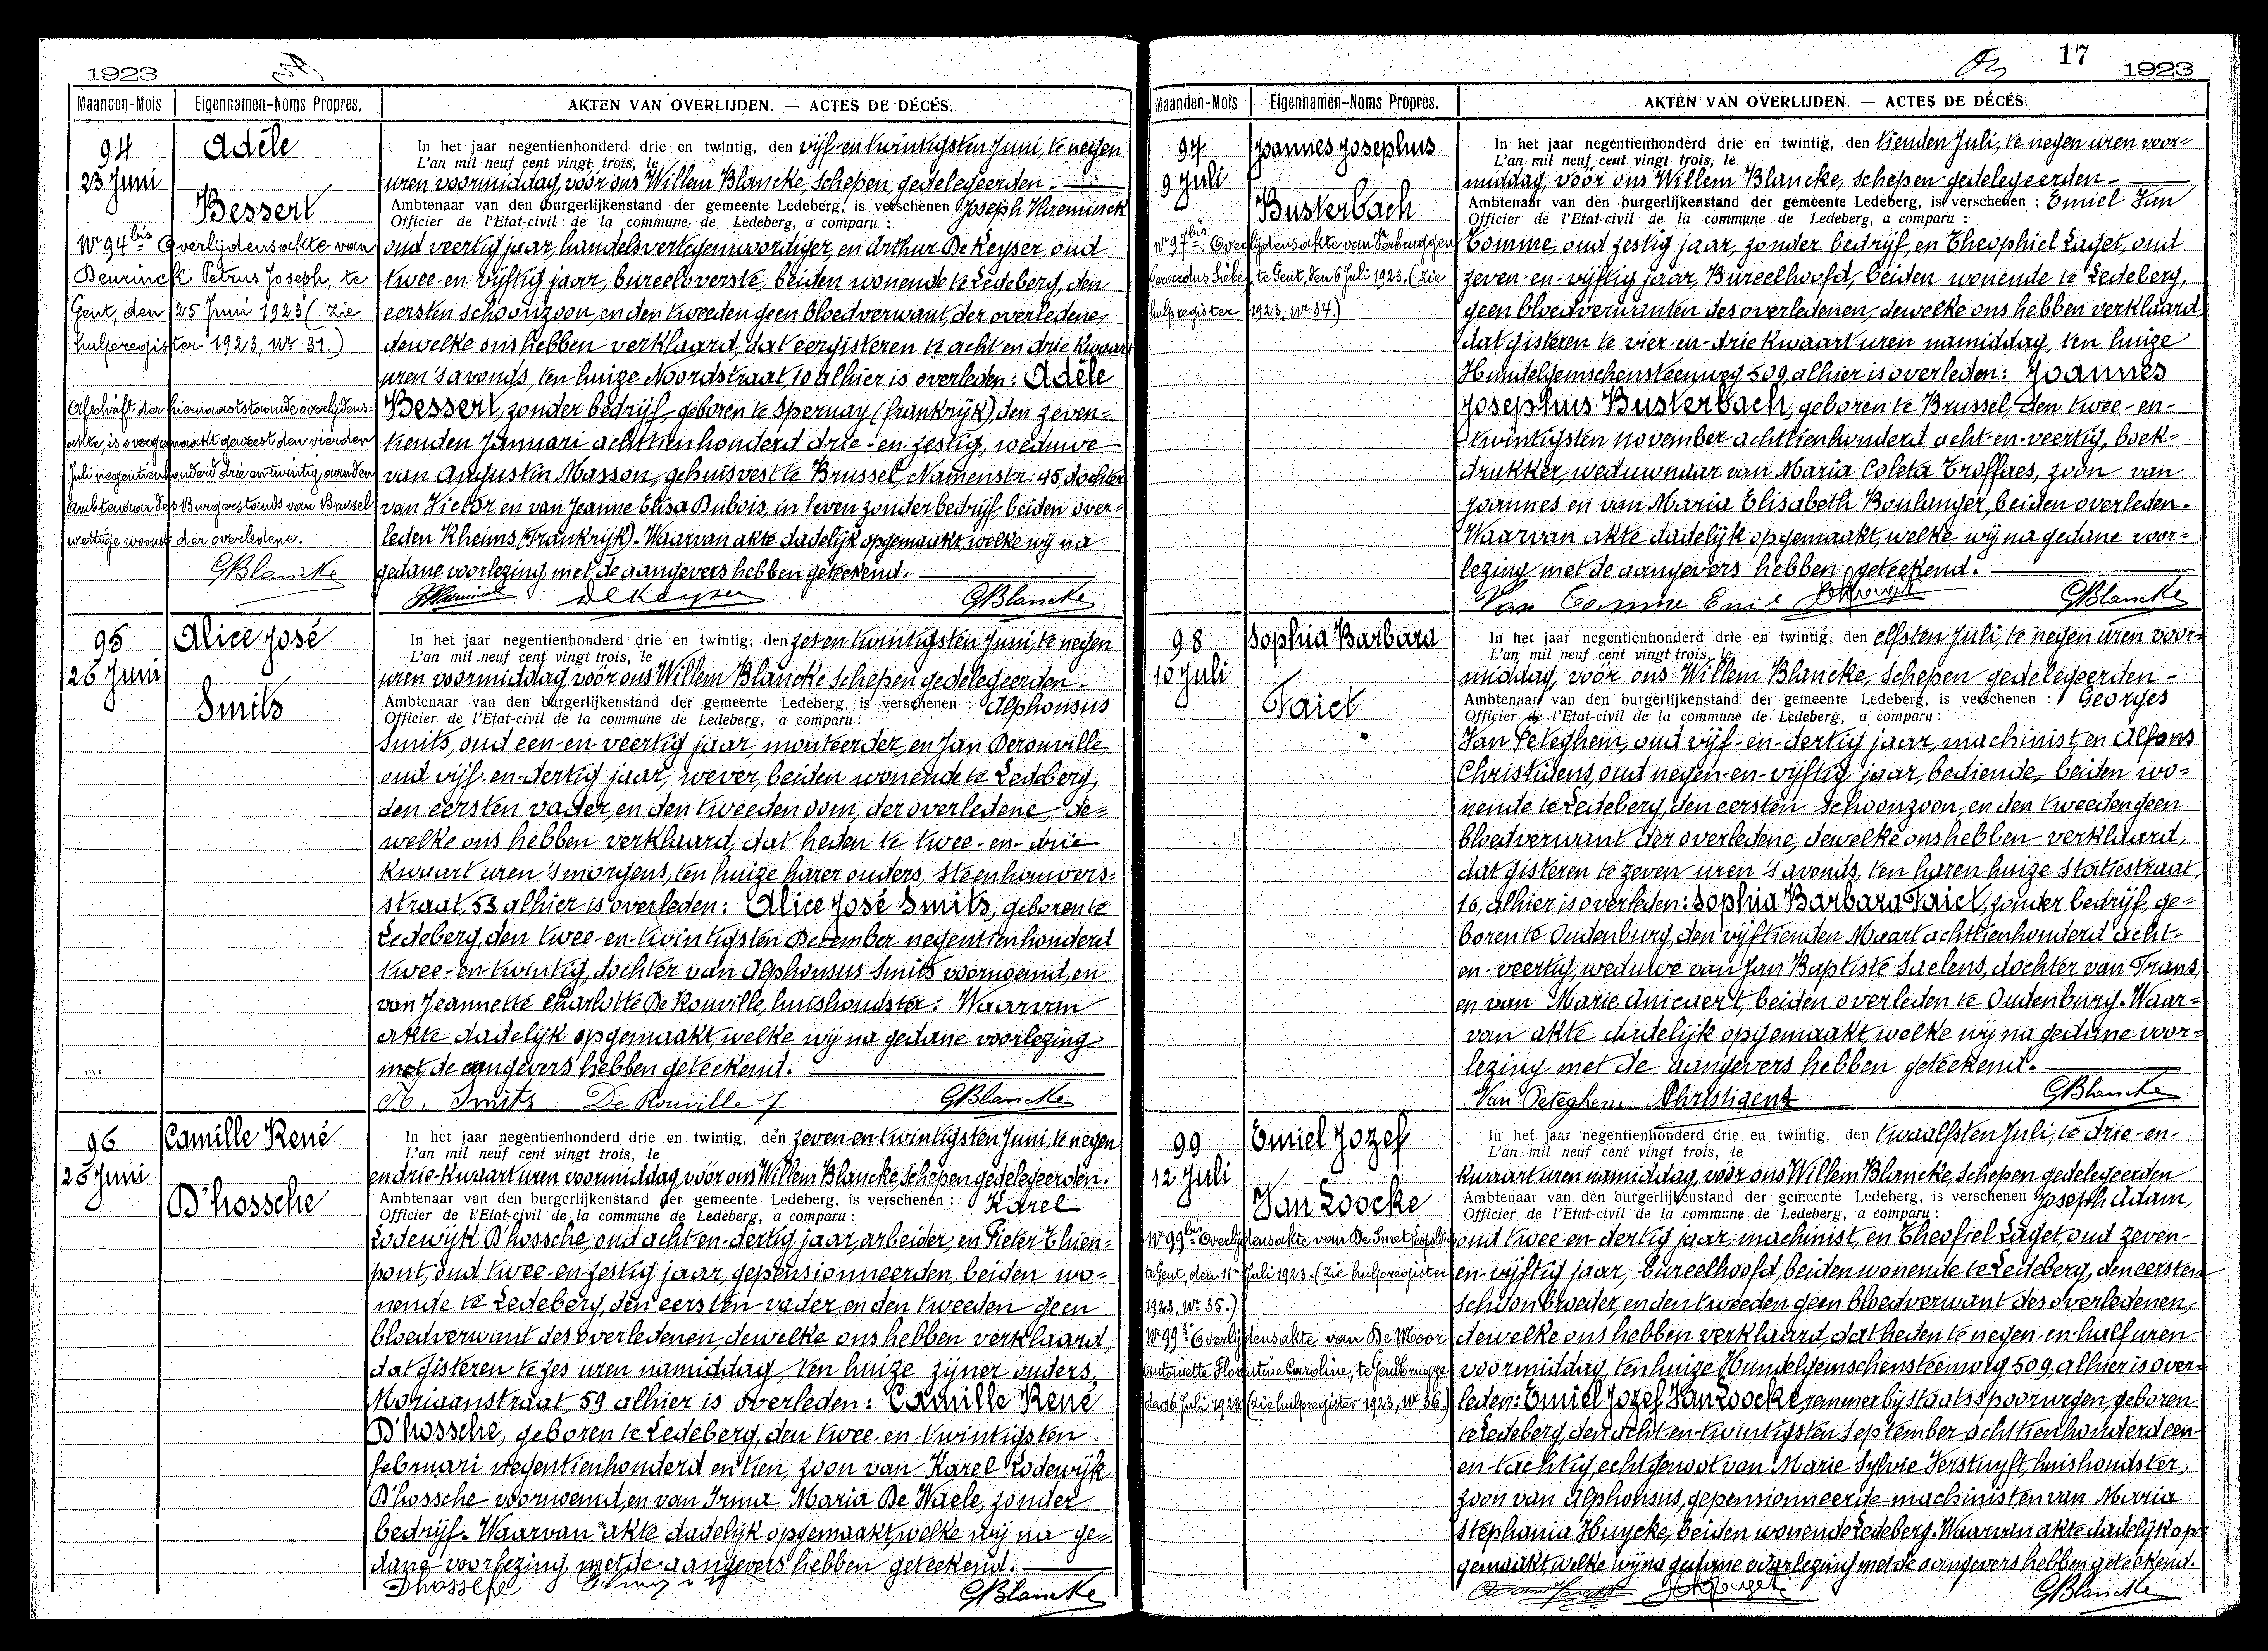 1923
Maanden-Mois Eigennamen-Noms Propres. AKTEN VAN OVERLIJDEN. — ACTES DE DÉCÉS.
94
23 Juni
Adèle
Bessert
Nr 94bis Overlijdensakte van
Deurinck Petrus Joseph, te
Gent, den 25 Juni 1923 (Zie
hulpregister 1923, Nr 31.)
Afschrift der hiernaaststaande overlijdens-
akte, is overgemaakt geweest den vierden
Juli negentienhonderd drie en twintig, aan den
Ambtenaar des Burgerstands van Brussel
wettige woonst der overledene.
GBlancke
In het jaar negentienhonderd drie en twintig, den vijf-en-twintigsten Juni, te negen
L'an mil neuf cent vingt trois, le
uren voormiddag, vóór ons Willem Blancke, Schepen gedelegeerden
Ambtenaar van den burgerlijkenstand der gemeente Ledeberg, is verschenen : Joseph
Officier de l'Etat-civil de la commune de Ledeberg, a comparu :
oud veertig jaar, handelsvertegenwoordiger, en Arthur De Keyser, oud
twee-en-vijftig jaar, bureeloverste, beiden wonende te Ledeberg, den
eersten schoonzoon, en den tweeden geen bloedverwant, der overledene,
dewelke ons hebben verklaard, dat eergisteren te acht en drie kwaart
uren 's avonds, ten huize Noordstraat, 10 alhier is overleden: Adèle
Bessert, zonder bedrijf, geboren te Epernay (Frankrijk) den zeven=
tienden Januari achttienhonderd drie-en-zestig, weduwe
van Augustin Masson, gehuisvest te Brussel, Namenstr: 45, dochter
van Victor en van Jeanne Elisa Dubois, in leven zonder bedrijf, beiden over=
leden Rheims (Frankrijk). Waarvan akte dadelijk opgemaakt, welke wij na
gedane voorlezing met de aangevers hebben geteekend.
De Keyser GBlancke
95
26 Juni
Alice José
Smits
In het jaar negentienhonderd drie en twintig, den zes-en-twintigsten Juni, te negen
L'an mil neuf cent vingt trois, le
uren voormiddag, vóór ons Willem Blancke Schepen gedelegeerden.
Ambtenaar van den burgerlijkenstand der gemeente Ledeberg, is verschenen : Alphonsus
Officier de l'Etat-civil de la commune de Ledeberg, a comparu :
Smits, oud een-en-veertig jaar, monteerder, en Jan Derouville,
oud vijf-en-dertig jaar, wever, beiden wonende te Ledeberg,
den eersten vader, en den tweeden oom, der overledene, de=
welke ons hebben verklaard, dat heden te twee-en-drie
kwaart uren 's morgens, ten huize harer ouders, Steenhouwers=
straat, 53 alhier is overleden: Alice José Smits, geboren te
Ledeberg, den twee-en-twintigsten December negentienhonderd
twee-en-twintig, dochter van Alphonsus Smits voornoemd, en
van Jeannette Charlotte De Rouville, huishoudster. Waarvan
akte dadelijk opgemaakt, welke wij na gedane voorlezing
met de aangevers hebben geteekend.
A. Smits De Rouville J GBlancke
96
26 Juni
Camille René
D'hossche
In het jaar negentienhonderd drie en twintig, den zeven-en-twintigsten Juni, te negen
L'an mil neuf cent vingt trois, le
en drie-kwaart uren voormiddag, vóór ons Willem Blancke, Schepen gedelegeerden.
Ambtenaar van den burgerlijkenstand der gemeente Ledeberg, is verschenen : Karel
Officier de l'Etat-civil de la commune de Ledeberg, a comparu :
Lodewijk D'hossche, oud acht-en-dertig jaar, arbeider, en Pieter Thien=
pont, oud twee-en-zestig jaar, gepensionneerden, beiden wo=
nende te Ledeberg, den eersten vader, en den tweeden geen
bloedverwant des overledenen, dewelke ons hebben verklaard,
dat gisteren te zes uren namiddag, ten huize zijner ouders,
Moriaanstraat, 59 alhier is overleden: Camille René
D'hossche, geboren te Ledeberg, den twee-en-twintigsten
februari negentienhonderd en tien, zoon van Karel Lodewijk
D'hossche voornoemd, en van Irma Maria De Waele, zonder
bedrijf. Waarvan akte dadelijk opgemaakt, welke wij na ge=
dane voorlezing met de aangevers hebben geteekend.
Dhossche GBlancke
17
1923
Maanden-Mois Eigennamen-Noms Propres. AKTEN VAN OVERLIJDEN. — ACTES DE DÉCÉS.
97
9 Juli
Joannes Josephus
Busterbach
Nr 97bis Overlijdensakte van Verbruggen
Gerardus Liebe, te Gent, den 6 Juli 1923. (Zie
hulpregister 1923, Nr 34.)
In het jaar negentienhonderd drie en twintig, den tienden Juli, te negen uren voor=
L'an mil neuf cent vingt trois, le
middag, vóór ons Willem Blancke, Schepen gedelegeerden
Ambtenaar van den burgerlijkenstand der gemeente Ledeberg, is verschenen : Emiel Van
Officier de l'Etat-civil de la commune de Ledeberg, a comparu :
Comme, oud zestig jaar, zonder bedrijf, en Theophiel Laget, oud
zeven-en-vijftig jaar, Bureelhoofd, beiden wonende te Ledeberg,
geen bloedverwanten des overledenen, dewelke ons hebben verklaard,
dat gisteren te vier-en-drie kwaart uren namiddag, ten huize
Hundelgemschensteenweg 509 alhier is overleden: Joannes
Josephus Busterbach, geboren te Brussel, den twee-en-
twintigsten november achttienhonderd acht-en-veertig, boek=
drukker, weduwnaar van Maria Coleta Troffaes, zoon van
Joannes en van Maria Elisabeth Boulanger, beiden overleden.
Waarvan akte dadelijk opgemaakt, welke wij na gedane voor=
lezing met de aangevers hebben geteekend.
Van Comme Emiel GBlancke
98
10 Juli
Sophia Barbara
Taict
In het jaar negentienhonderd drie en twintig, den elfsten Juli, te negen uren voor=
L'an mil neuf cent vingt trois, le
middag, vóór ons Willem Blancke, Schepen gedelegeerden
Ambtenaar van den burgerlijkenstand der gemeente Ledeberg, is verschenen : Georges
Officier de l'Etat-civil de la commune de Ledeberg, a comparu :
Van Peteghem, oud vijf-en-dertig jaar, machinist, en Alfons
Christiaens, oud negen-en-vijftig jaar, bediende, beiden wo=
nende te Ledeberg, den eersten schoonzoon, en den tweeden geen
bloedverwant der overledene, dewelke ons hebben verklaard,
dat gisteren te zeven uren 's avonds, ten haren huize Statiestraat,
16, alhier is overleden: Sophia Barbara Taict, zonder bedrijf, ge=
boren te Oudenburg, den vijftienden Maart achttienhonderd acht-
en-veertig, weduwe van Jan Baptiste Saelens, dochter van Frans,
en van Marie Anicaert, beiden overleden te Oudenburg. Waar=
van akte dadelijk opgemaakt, welke wij na gedane voor=
lezing met de aangevers hebben geteekend.
Van Peteghem GBlancke
99
12 Juli
Emiel Jozef
Van Loocke
Nr 99bis Overlijdensakte van De Smet
te Gent, den 11n Juli 1923. (Zie hulpregister
1923, Nr 35.)
Nr 993° Overlijdensakte van De Moor
Antoinette Florentine Caroline, te Gendbrugge
den 6 Juli 1923 (zie hulpregister 1923, Nr 36.)
In het jaar negentienhonderd drie en twintig, den twaalfsten Juli, te drie-en-
L'an mil neuf cent vingt trois, le
kwaart uren namiddag, vóór ons Willem Blancke, Schepen gedelegeerden
Ambtenaar van den burgerlijkenstand der gemeente Ledeberg, is verschenen Joseph Adam,
Officier de l'Etat-civil de la commune de Ledeberg, a comparu :
oud twee-en-dertig jaar, machinist, en Theofiel Laget, oud zeven-
en-vijftig jaar, bureelhoofd, beiden wonende te Ledeberg, den eersten
schoonbroeder, en den tweeden geen bloedverwant des overledenen,
dewelke ons hebben verklaard, dat heden te negen-en-half uren
voormiddag, ten huize Hundelgemschensteenweg 509 alhier is over=
leden: Emiel Jozef Van Loocke, remmer bij staatsspoorwegen, geboren
te Ledeberg, den acht-en-twintigsten September achttienhonderd een-
en-tachtig, echtgenoot van Marie Sylvie Verstuyft, huishoudster,
zoon van Alphonsus, gepensionneerde machinist, en van Maria
Stephania Huycke, beiden wonende Ledeberg. Waarvan akte dadelijk op=
gemaakt, welke wij na gedane voorlezing met de aangevers hebben geteekend.
GBlancke